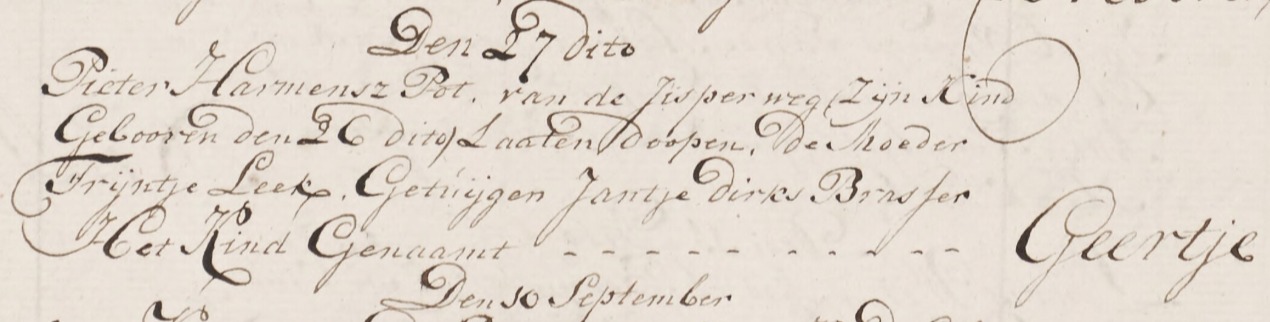 Den 27 dito
Pieter Harmensz Pot. van de Jisper weg (Zijn Kind
Gebooren den 26 dito) Laaten Doopen, De Moeder
Trijntje Leek, Getúijgen Jantje dirks Brasser
Het Kind Genaamt - - - - - - - - - - - Geertje
Den 10 September